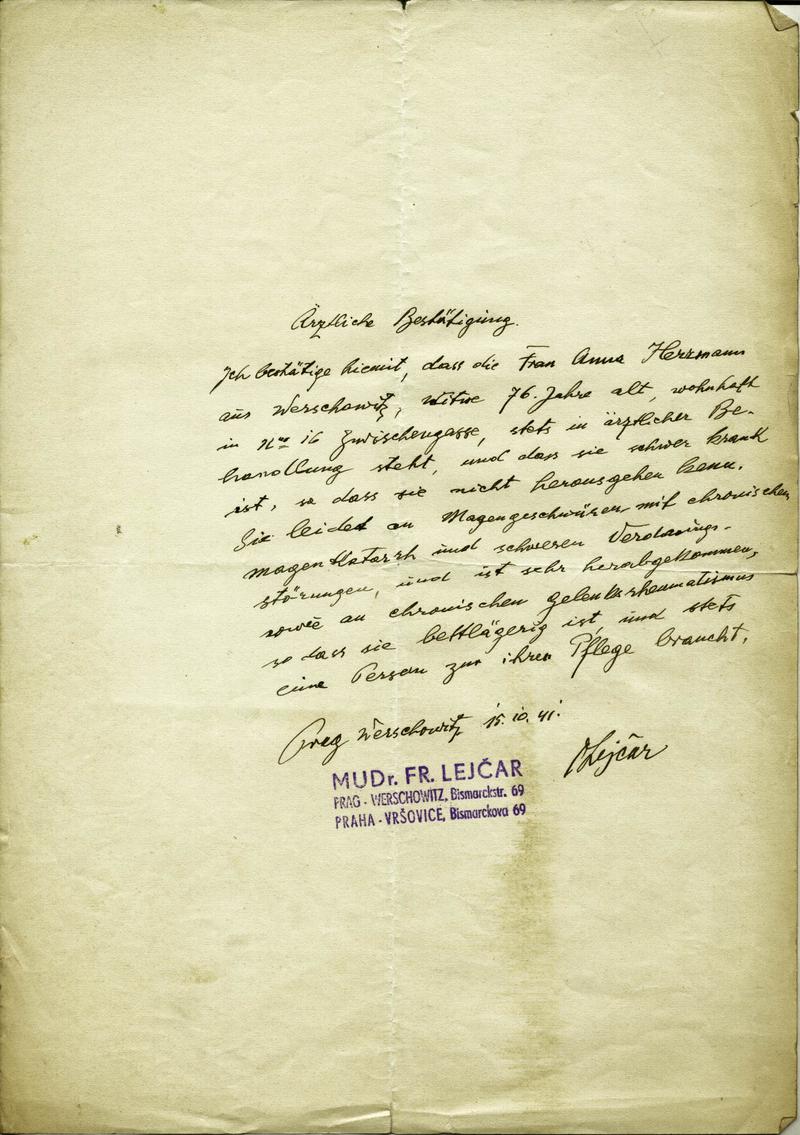 Ärztliche Bestätigung.
Ich bestätige hiemit, dass die Frau Anna Herzmann
aus Werschowitz, Witwe 76. Jahre alt, wohnhaft
in Nro 16 Zwischengasse, stets in ärztlicher Be-
handlung steht, und dass sie schwer krank
ist, so dass sie nicht herausgehen kann.
Sie leidet an Magengeschwüren mit chronischen
Magenkatarrh und schweren Verdauungs-
störungen, und ist sehr herabgekommen,
sowie an chronischen Gelenksrheumatismus
so dass sie bettlägerig ist, und stets
eine Person zur ihren Pflege braucht.
Prag Werschowitz 15.10.41.
Lejčar
MUDr. FR. LEJČAR
PRAG - WERSCHOWITZ, Bismarckstr. 69
PRAHA - VRŠOVICE, Bismarckova 69